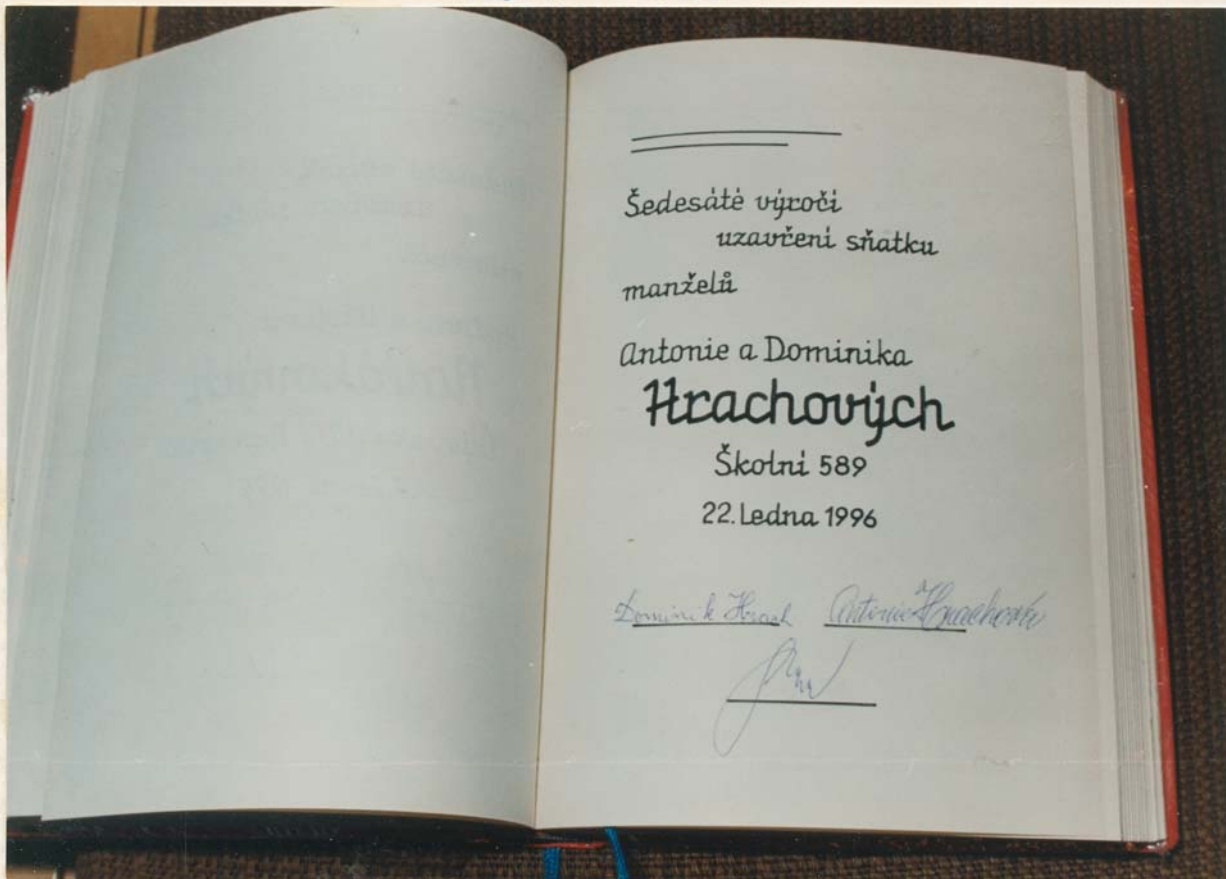 Šedesáté výročí
uzavření sňatku
manželů
Antonie a Dominika
Hrachových
Školní 589
22. Ledna 1996
Dominik Hrach Antonie Hrachová